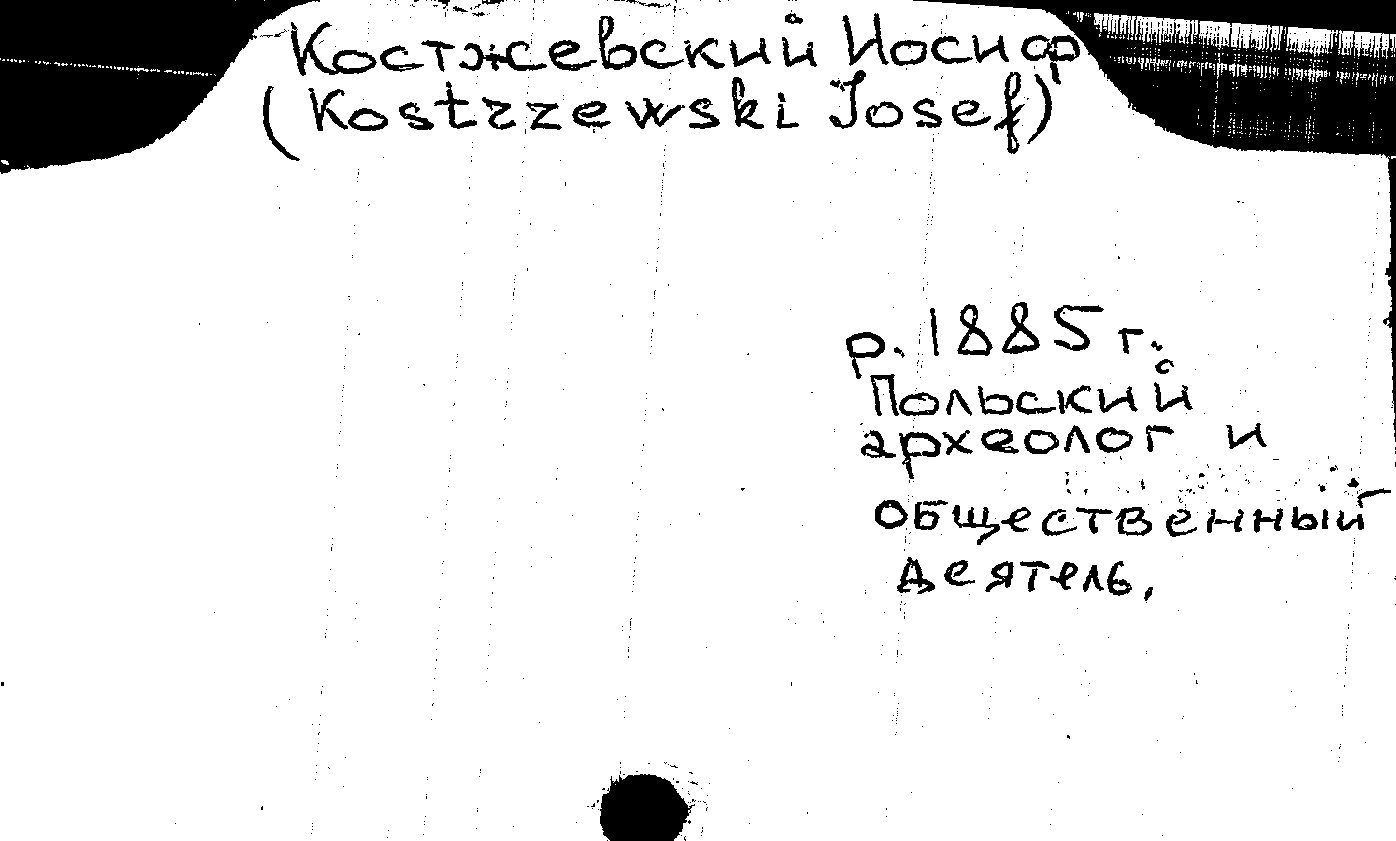 Костжевский Иосиф
(Kostrzewski Josef)
р. 1885 г.
Польский
археолог и
общественный
деятель.